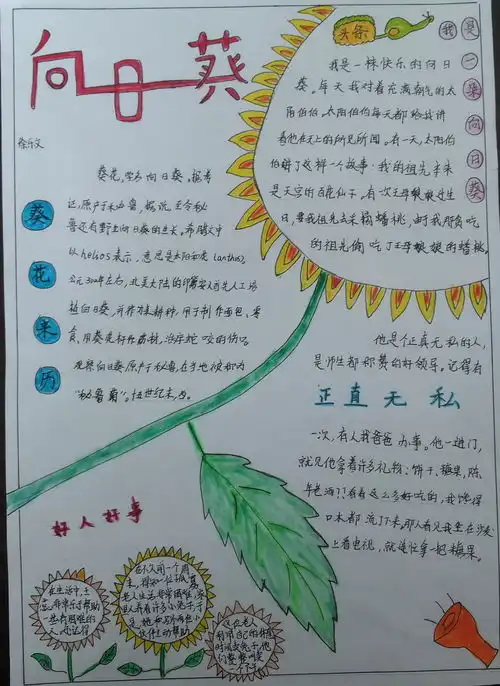 向日葵
徐乐文
头条
我是一朵向日葵
我是一株快乐的向日
葵。每天我对着充满朝气的太
阳伯伯。太阳伯伯每天都给我讲
着他在天上的所见所闻。有一天，太阳伯
伯讲了这样一个故事：我的祖先本来
是天宫的百花仙子。有次王母娘娘过生
日，要我祖先去采摘蟠桃，由于我那贪吃
的祖先偷吃了王母娘娘的蟠桃。
葵花来历
葵花，学名向日葵。据考
证，原产于秘鲁，据说，至今秘
鲁还有野生向日葵的生长。希腊文中
以helios表示，意思是太阳
公元3000年左右，北美大陆的印第安人首先人工培
植向日葵，并作为来耕种，用于制作面包、零
食，用葵花籽作药材，治疗蛇咬的伤口。
观赏向日葵原产于秘鲁，在当地被称为
“秘鲁菊”。
他是个正真无私的人，
是师生都称赞的好领导。记得有
正直无私
一次，有人找爸爸办事。他一进门，
就见他拿着许多礼物：饼干、糖果，陈
年老酒！？看着这么多好吃的，我馋得
口水都流了下来。那人看见我坐在沙发
上看电视，就连忙拿一把糖果。
好人好事
在生活中，王
总，非常乐于帮助
一些有困难的
人，还记得
在不久前一个周
末，
老人生活非常困难，家
里又养着许多小兔子，于
是，她和另外两位小
伙伴主动帮助
这位老人
利用自己的休息
时间去兔子，他
们整整